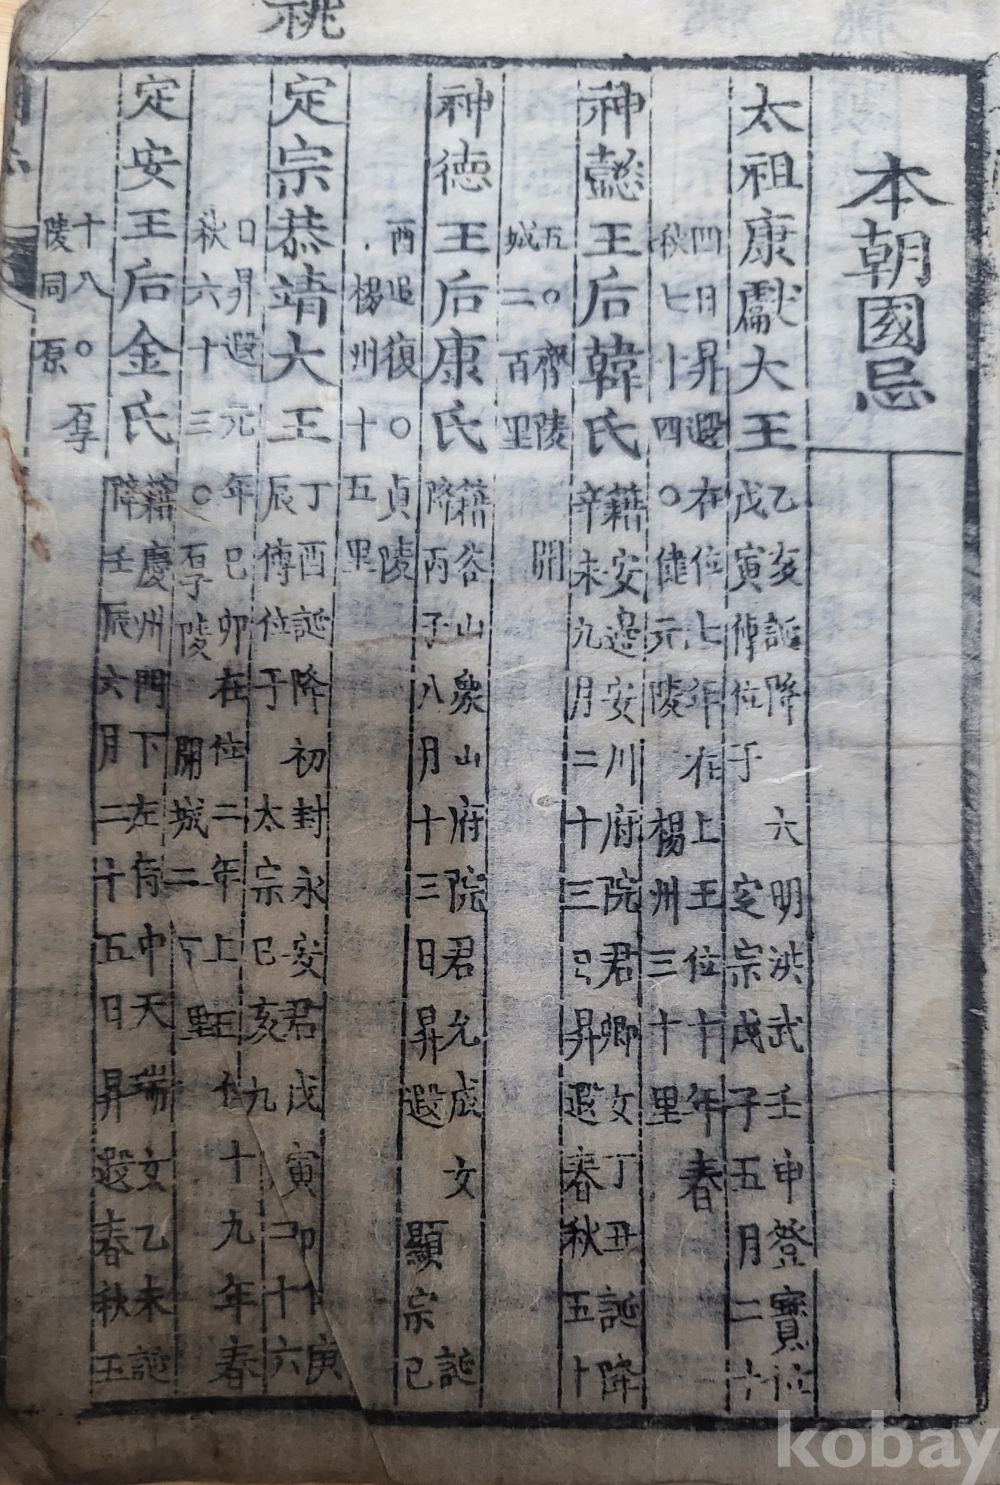 祧
本朝國忌
太祖康獻大王 乙亥誕降 大明洪武壬申登寶位
戊寅傳位于 定宗戊子五月二十
四日昇遐在位七年在上王位十年春
秋七十四○健元陵 楊州三十里
神懿王后韓氏 籍安邊安川府院君卿女丁丑誕降
辛未九月二十三日昇遐春秋五十
五○齊陵 開
城二百里
神德王后康氏 籍谷山象山府院君允成女 誕
降丙子八月十三日昇遐 顯宗己
酉追復○貞陵
楊州十五里
定宗恭靖大王 丁酉誕降初封永安君戊寅 庚
辰傳位于 太宗己亥九 十六
日昇遐元年己卯在位二年上王位十九年春
秋六十三○厚陵 開城二 里
定安王后金氏 籍慶州門下左侍中天瑞女乙未誕
降壬辰六月二十五日昇遐春秋五
十八○厚
陵同原
kobay